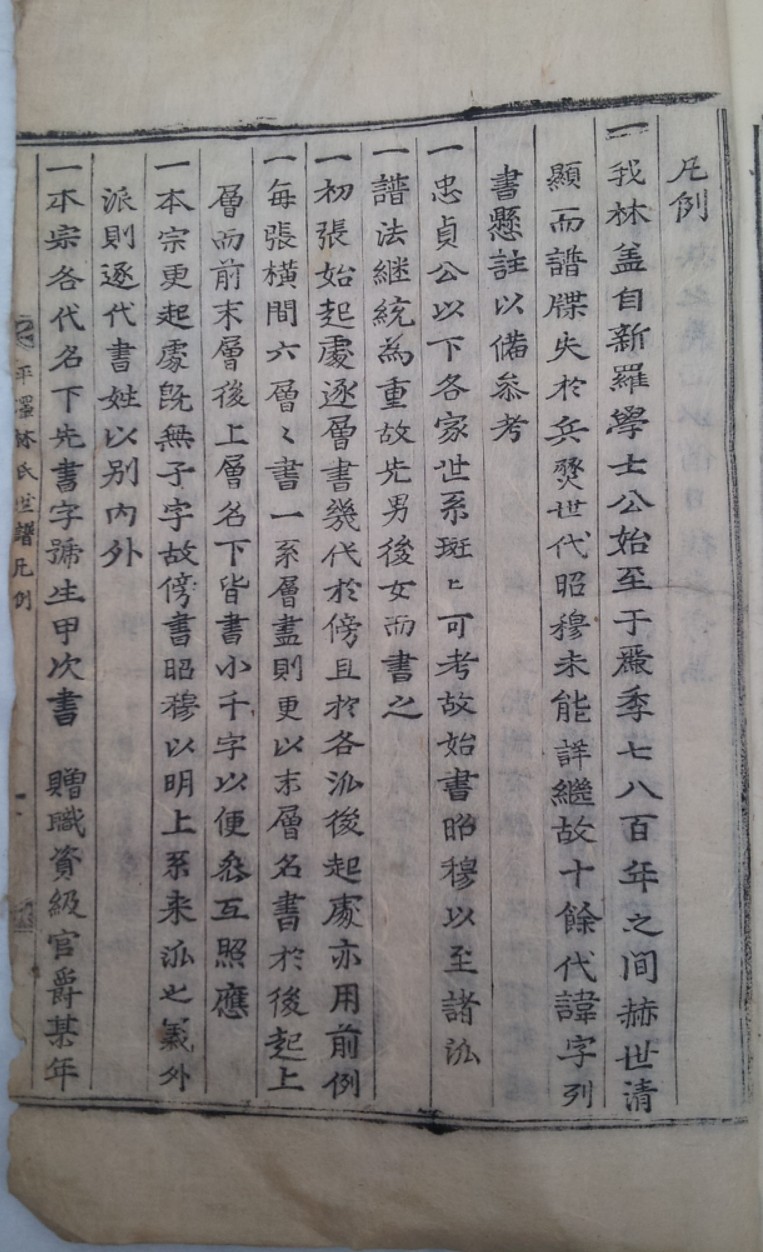 凡例
一我林盖自新羅學士公始至于麗季七八百年之间赫世清
顯而譜牒失於兵燹世代昭穆未能詳繼故十餘代諱字列
書懸註以備叅考
一忠貞公以下各家世系斑〻可考故始書昭穆以至諸派
一譜法継統為重故先男後女而書之
一初張始起處逐層書幾代於傍且於各派後起處亦用前例
一每張橫間六層〻書一系層盡則更以末層名書於後起上
層而前末層後上層名下皆書小千字以便叅互照應
一本宗更起處既無子字故傍書昭穆以明上系来派之義外
派則逐代書姓以别內外
一本宗各代名下先書字號生甲次書 贈職資級官爵某年
平澤林氏世譜凡例